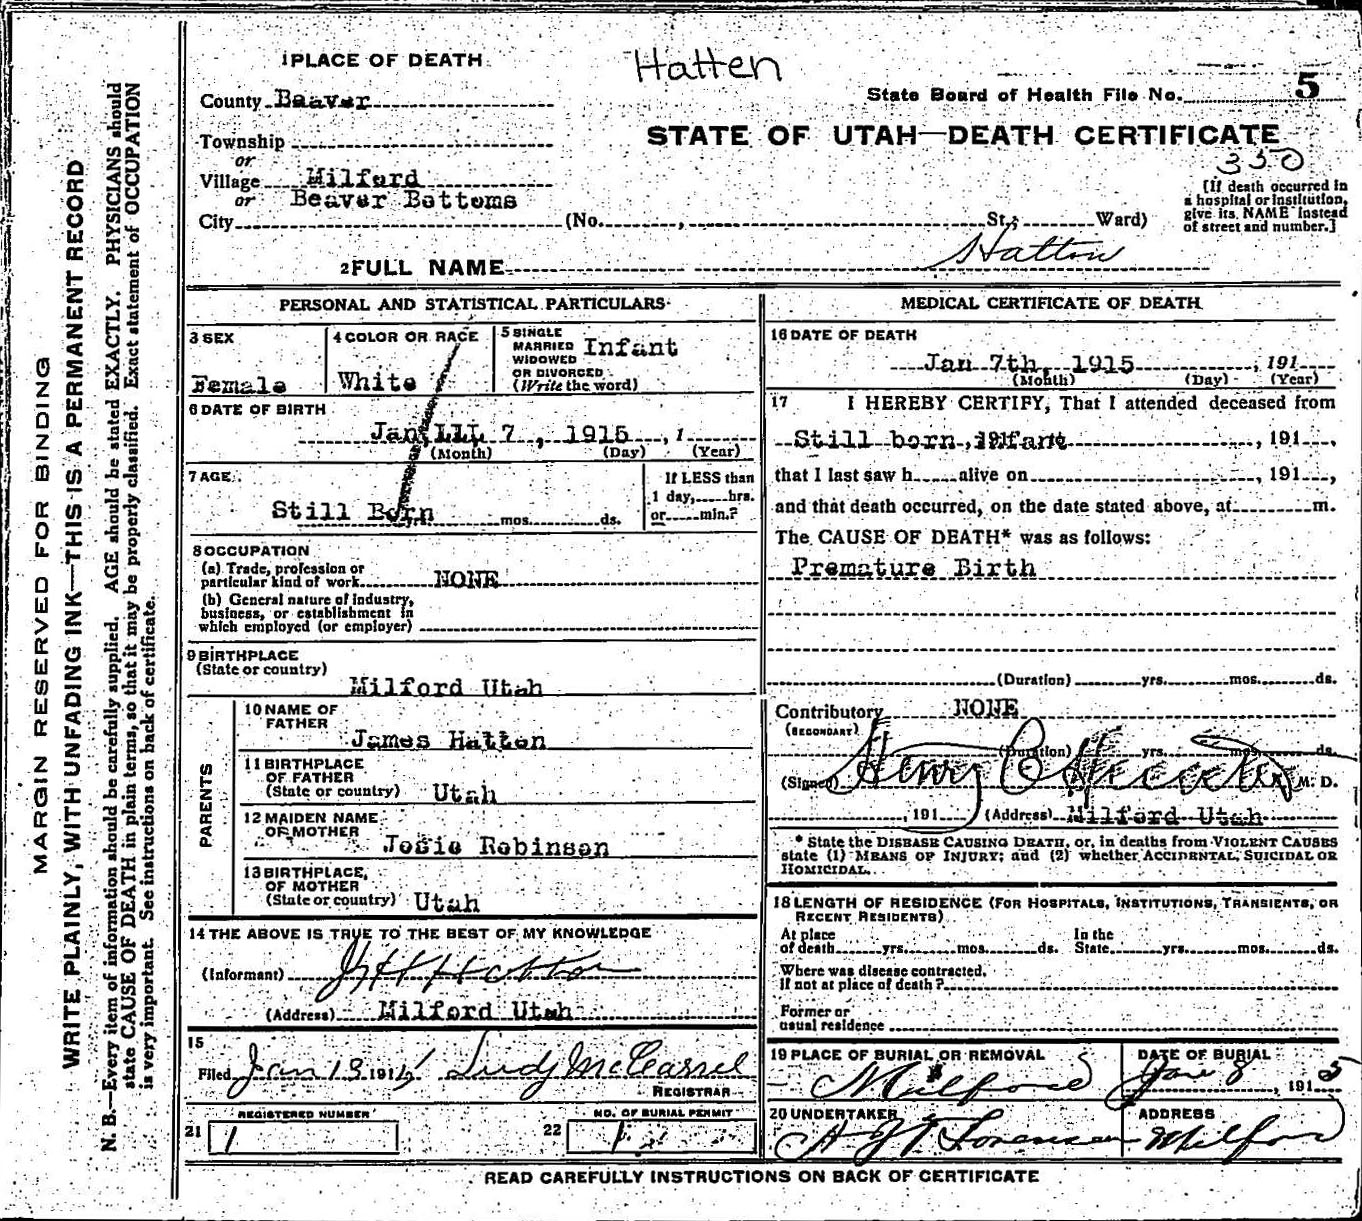 Hatten
1 PLACE OF DEATH
County Beaver
State Board of Health File No. 5
STATE OF UTAH—DEATH CERTIFICATE
330
Township
or
Village Milford
or Beaver Bottoms
City (No. , St.; Ward)
[If death occurred in
a hospital or institution,
give its NAME instead
of street and number.]
2 FULL NAME Hatton
PERSONAL AND STATISTICAL PARTICULARS
3 SEX
Female
4 COLOR OR RACE
White
5 SINGLE
MARRIED
WIDOWED
OR DIVORCED
(Write the word)
Infant
6 DATE OF BIRTH
Jan 7, 1915, 1
(Month) (Day) (Year)
7 AGE
Still Born
yrs. mos. ds.
If LESS than
1 day, hrs.
or min.?
8 OCCUPATION
(a) Trade, profession or
particular kind of work NONE
(b) General nature of industry,
business, or establishment in
which employed (or employer)
9 BIRTHPLACE
(State or country)
Milford Utah
PARENTS
10 NAME OF
FATHER
James Hatton
11 BIRTHPLACE
OF FATHER
(State or country) Utah
12 MAIDEN NAME
OF MOTHER
Josie Robinson
13 BIRTHPLACE
OF MOTHER
(State or country) Utah
14 THE ABOVE IS TRUE TO THE BEST OF MY KNOWLEDGE
(Informant) Hatton
(Address) Milford Utah
15
Filed Jan 13 1915 McCarrel
REGISTRAR
REGISTERED NUMBER
21 1
NO. OF BURIAL PERMIT
22 1
MEDICAL CERTIFICATE OF DEATH
16 DATE OF DEATH
Jan 7th, 1915, 191
(Month) (Day) (Year)
17 I HEREBY CERTIFY, That I attended deceased from
Still born infant, 191 ,
that I last saw h alive on , 191 ,
and that death occurred, on the date stated above, at m.
The CAUSE OF DEATH* was as follows:
Premature Birth
(Duration) yrs. mos. ds.
Contributory NONE
(SECONDARY)
(Duration) yrs. mos. ds.
(Signed) Henry M. D.
, 191 (Address) Milford Utah
* State the DISEASE CAUSING DEATH, or, in deaths from VIOLENT CAUSES
state (1) MEANS OF INJURY; and (2) whether ACCIDENTAL, SUICIDAL OR
HOMICIDAL.
18 LENGTH OF RESIDENCE (FOR HOSPITALS, INSTITUTIONS, TRANSIENTS, OR
RECENT RESIDENTS)
At place
of death yrs. mos. ds.
In the
State yrs. mos. ds.
Where was disease contracted,
if not at place of death?
Former or
usual residence
19 PLACE OF BURIAL OR REMOVAL
Milford
DATE OF BURIAL
Jan 8, 1915
20 UNDERTAKER
Sorensen
ADDRESS
Milford
READ CAREFULLY INSTRUCTIONS ON BACK OF CERTIFICATE
MARGIN RESERVED FOR BINDING
WRITE PLAINLY, WITH UNFADING INK—THIS IS A PERMANENT RECORD
N. B.—Every item of information should be carefully supplied. AGE should be stated EXACTLY. PHYSICIANS should
state CAUSE OF DEATH in plain terms, so that it may be properly classified. Exact statement of OCCUPATION
is very important. See instructions on back of certificate.